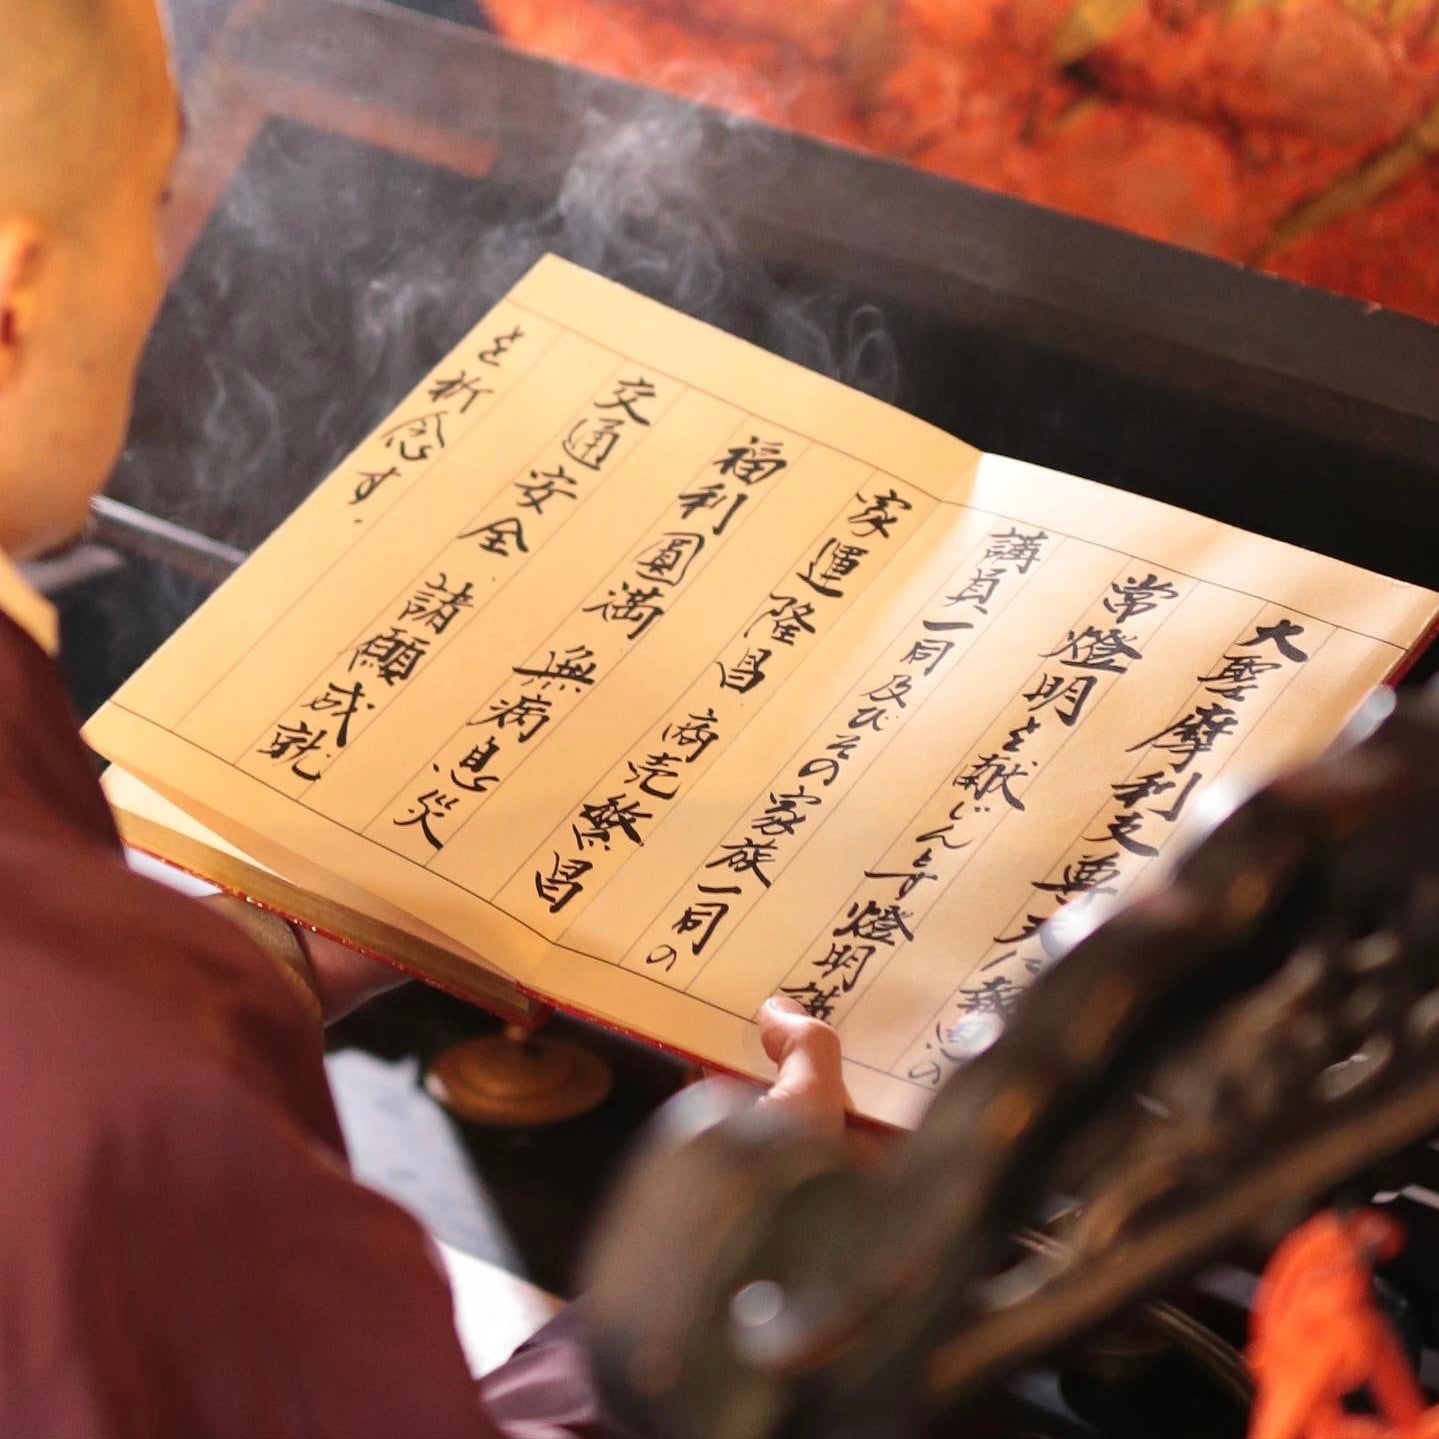 大聖摩利支尊天 報恩の
常燈明を献じん与燈明講
講員一同及びその家族一同の
家運隆昌 商売繁昌
福利圓満 無病息災
交通安全 諸願成就
を祈念す.